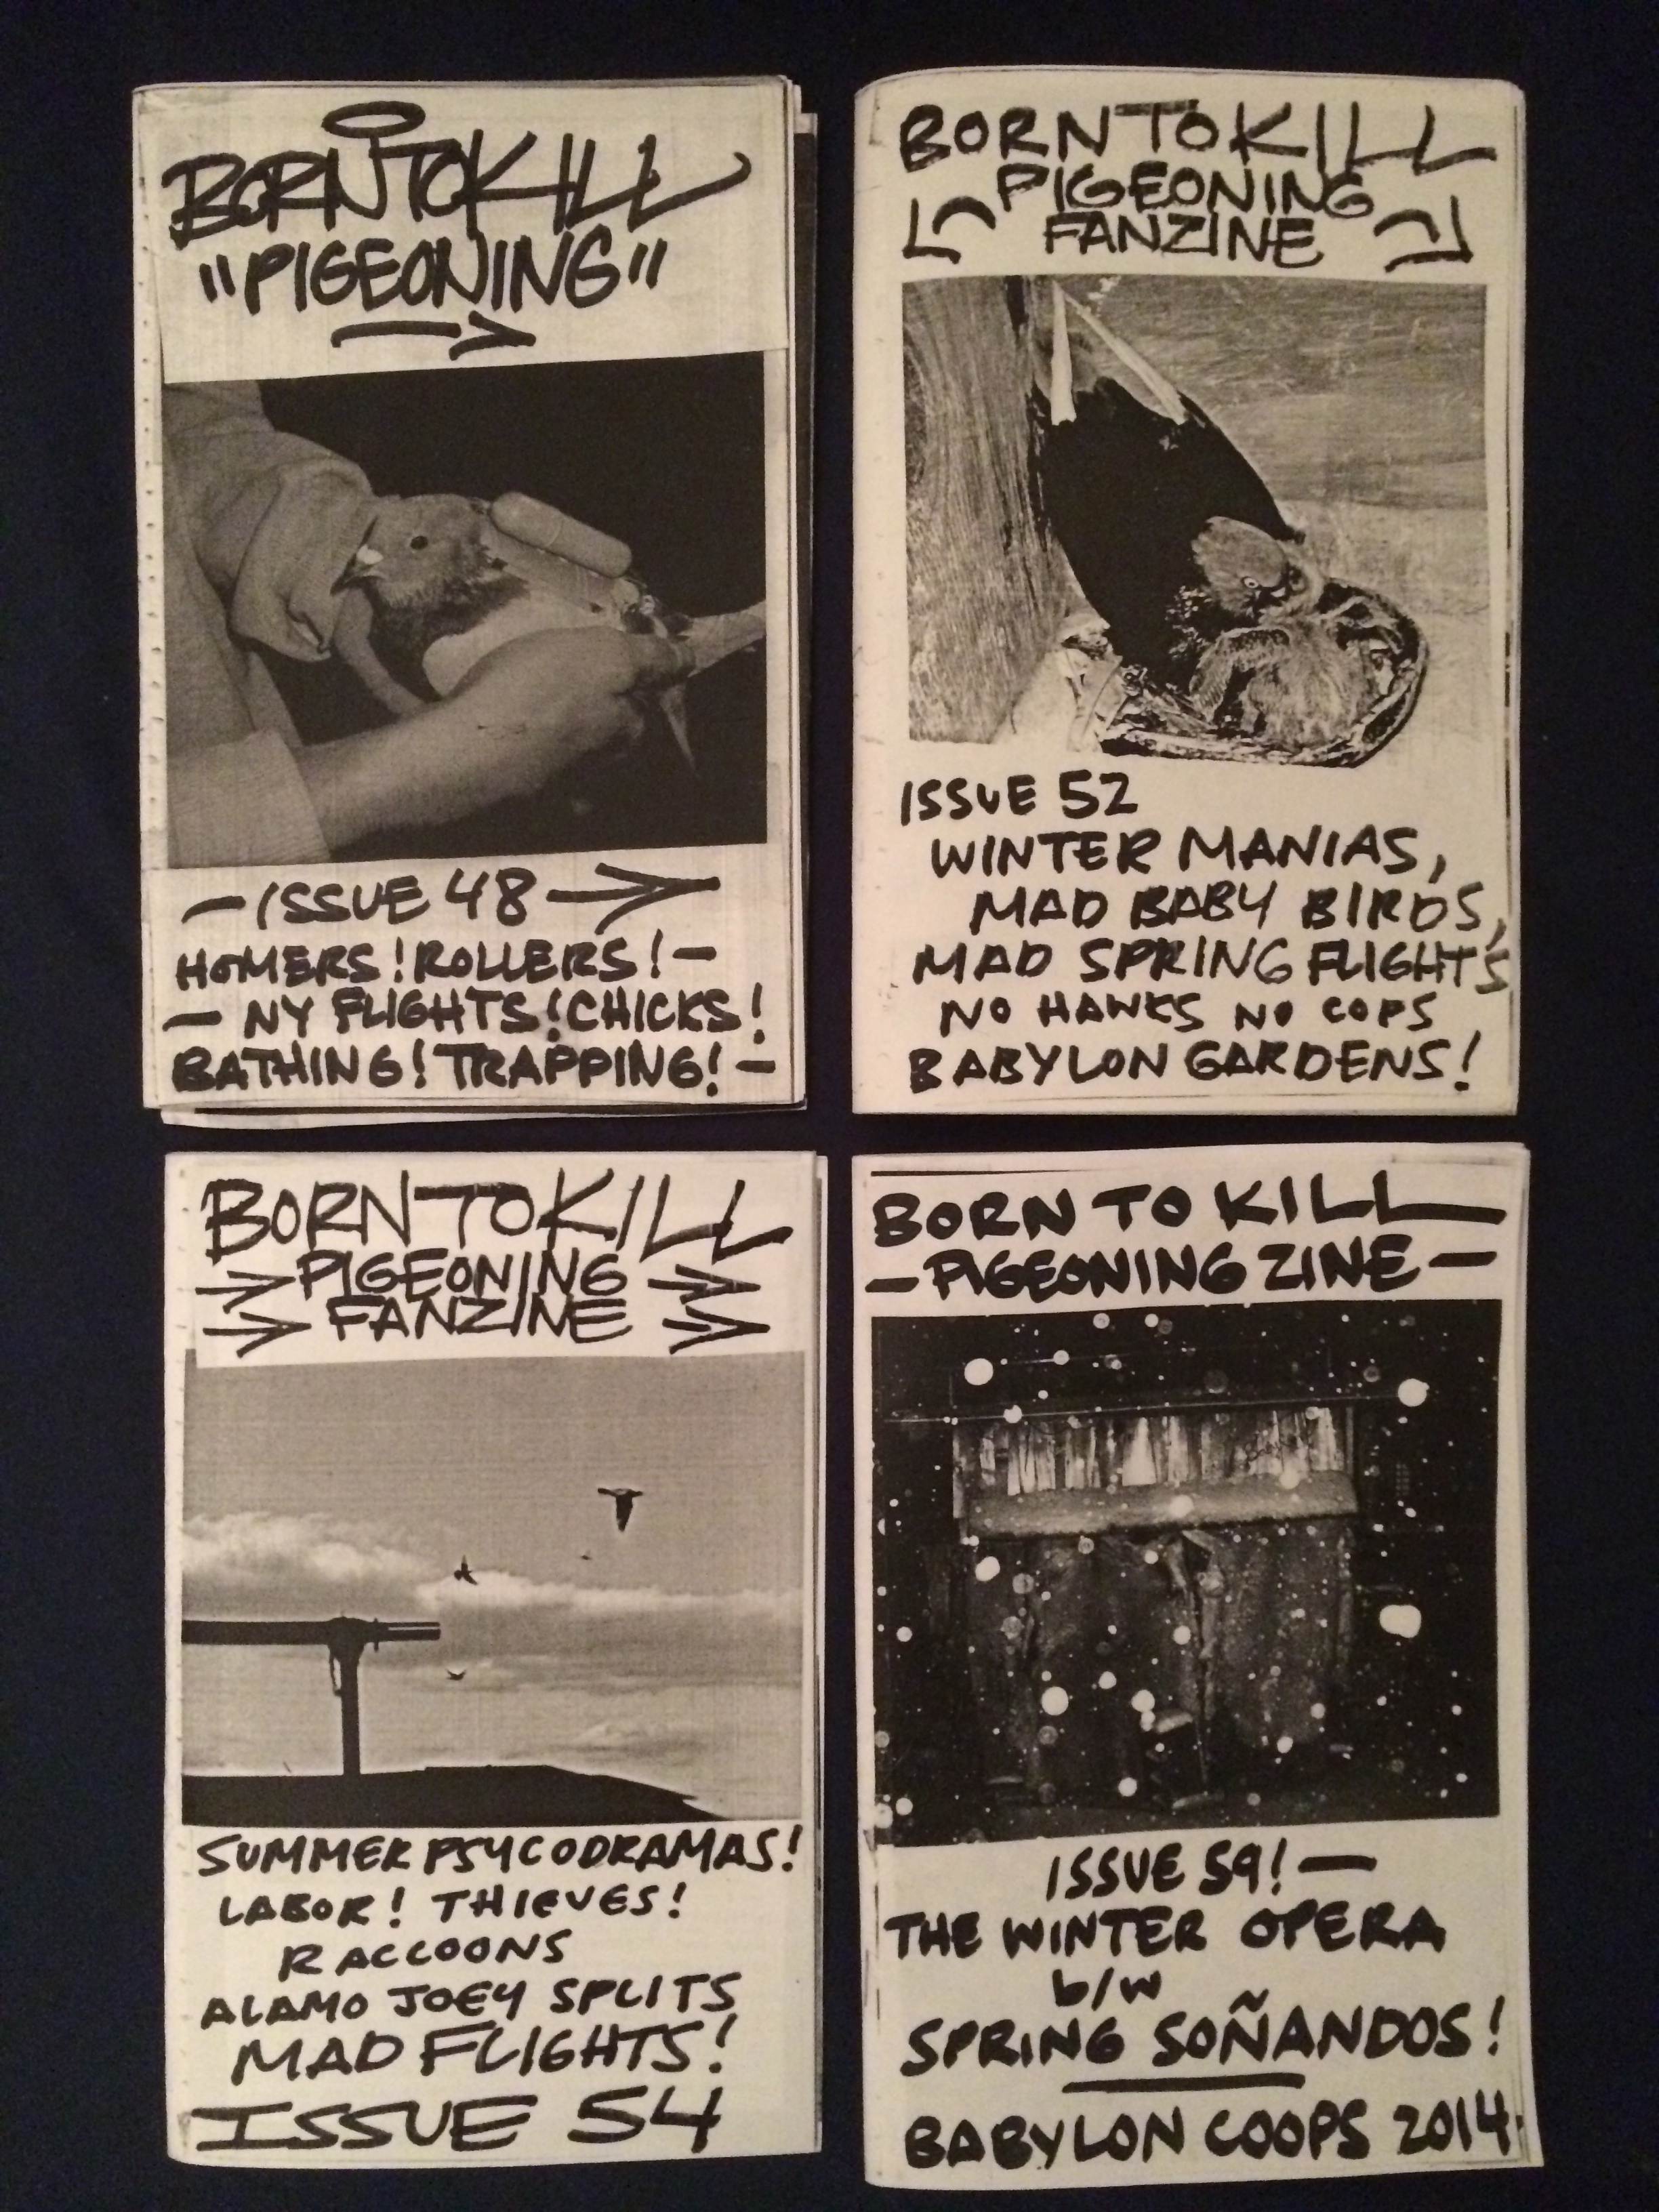 BORN TO KILL
"PIGEONING"
- ISSUE 48
HOMERS! ROLLERS! -
- NY FLIGHTS! CHICKS!
BATHING! TRAPPING! -
BORN TO KILL
PIGEONING
FANZINE
ISSUE 52
WINTER MANIAS,
MAD BABY BIRDS,
MAD SPRING FLIGHTS
NO HAWKS NO COPS
BABYLON GARDENS!
BORN TO KILL
PIGEONING
FANZINE
SUMMER PSYCODRAMAS!
LABOR! THIEVES!
RACCOONS
ALAMO JOEY SPLITS
MAD FLIGHTS!
ISSUE 54
BORN TO KILL
- PIGEONING ZINE -
ISSUE 59! -
THE WINTER OPERA
b/w
SPRING SOÑANDOS!
BABYLON COOPS 2014.